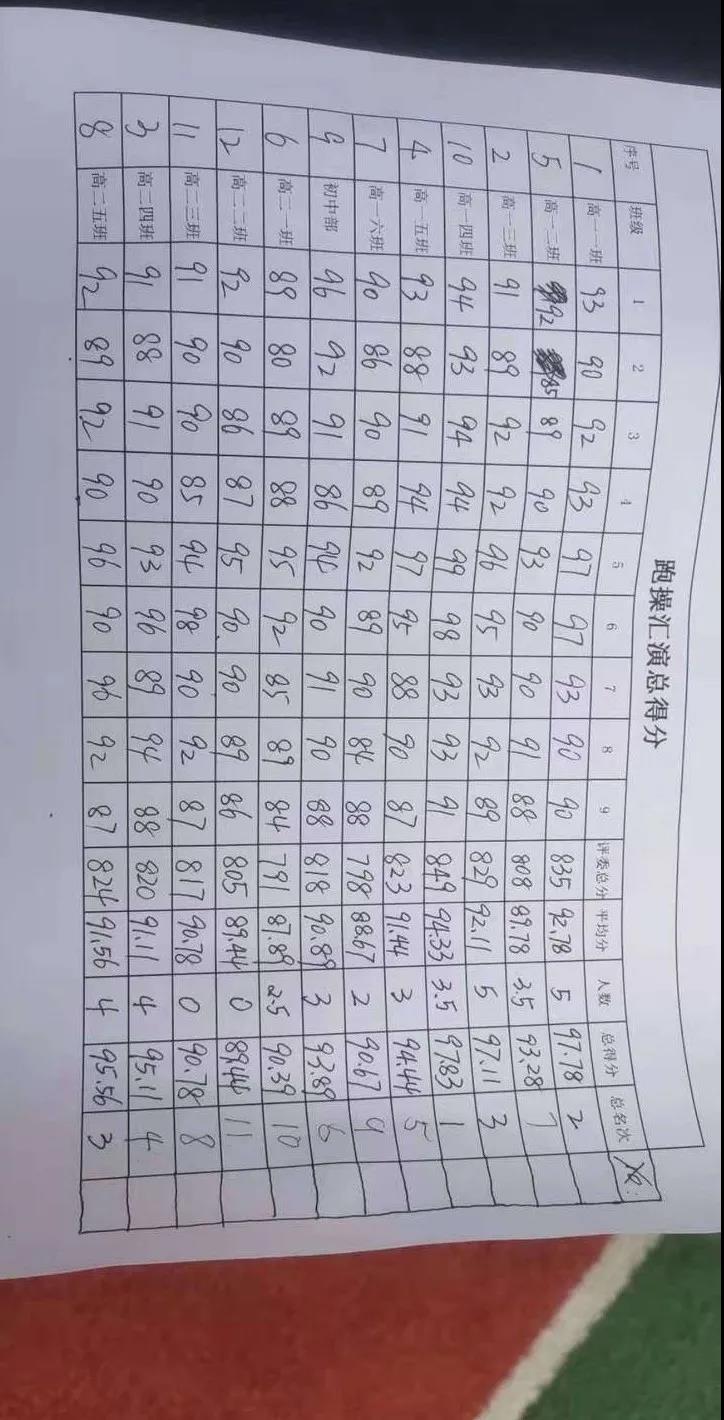 跑操汇演总得分
序号 班级 1 2 3 4 5 6 7 8 9 评委总分 平均分 人数 总得分 总名次
1 高一一班 93 90 92 93 97 97 93 90 90 835 92.78 5 97.78 2
5 高一二班 92 85 89 90 93 90 90 91 88 808 89.78 3.5 93.28 7
2 高一三班 91 89 92 92 96 95 93 92 89 829 92.11 5 97.11 3
10 高一四班 94 93 94 94 99 98 93 93 91 849 94.33 3.5 97.83 1
4 高一五班 93 88 91 94 97 95 88 90 87 823 91.44 3 94.44 5
7 高一六班 90 86 90 89 92 89 90 84 88 798 88.67 2 90.67 9
9 初中部 96 92 91 86 94 90 91 90 88 818 90.89 3 93.89 6
6 高二一班 89 80 89 88 95 92 85 89 84 791 87.89 2.5 90.39 10
12 高二二班 92 90 86 87 95 90 90 89 86 805 89.44 0 89.44 11
11 高二三班 91 90 90 85 94 98 90 92 87 817 90.78 0 90.78 8
3 高二四班 91 88 91 90 93 96 89 94 88 820 91.11 4 95.11 4
8 高二五班 92 89 92 90 96 90 96 92 87 824 91.56 4 95.56 3